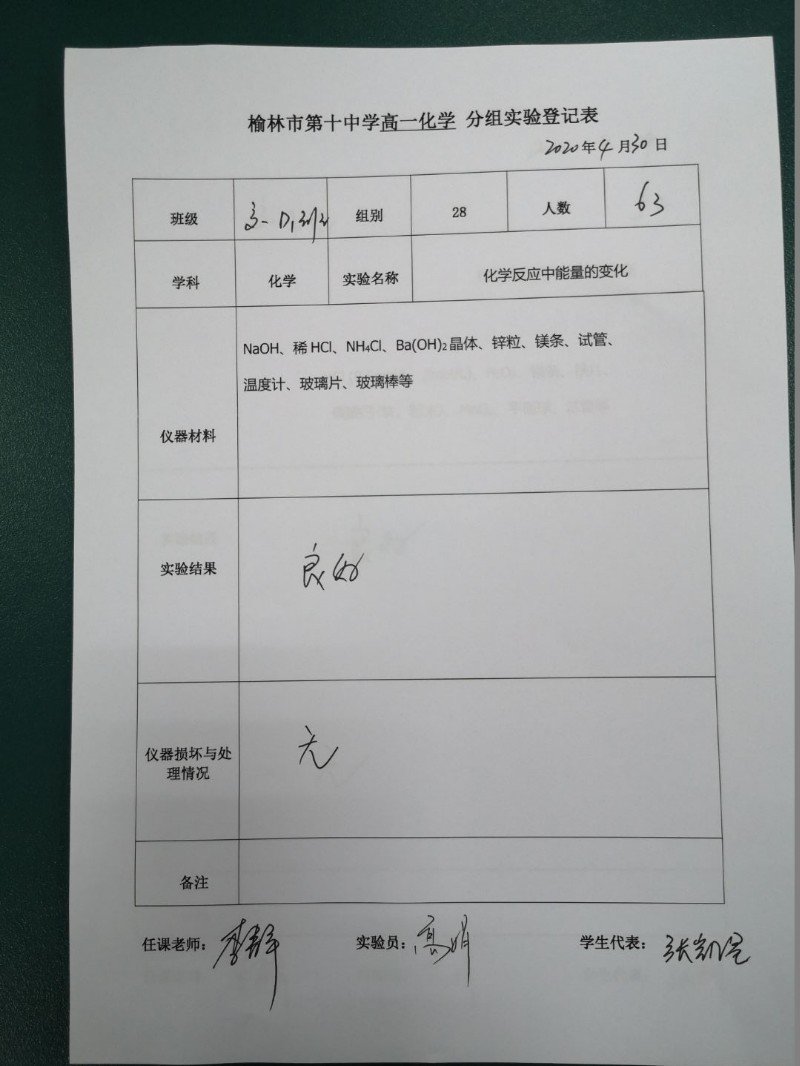 榆林市第十中学高一化学 分组实验登记表
2020年4月30日
班级 高一 组别 28 人数 63
学科 化学 实验名称 化学反应中能量的变化
NaOH、稀HCl、NH₄Cl、Ba(OH)₂晶体、锌粒、镁条、试管、
温度计、玻璃片、玻璃棒等
仪器材料
实验结果 良好
仪器损坏与处
理情况
无
备注
任课老师：李静 实验员：高娟 学生代表：张凯